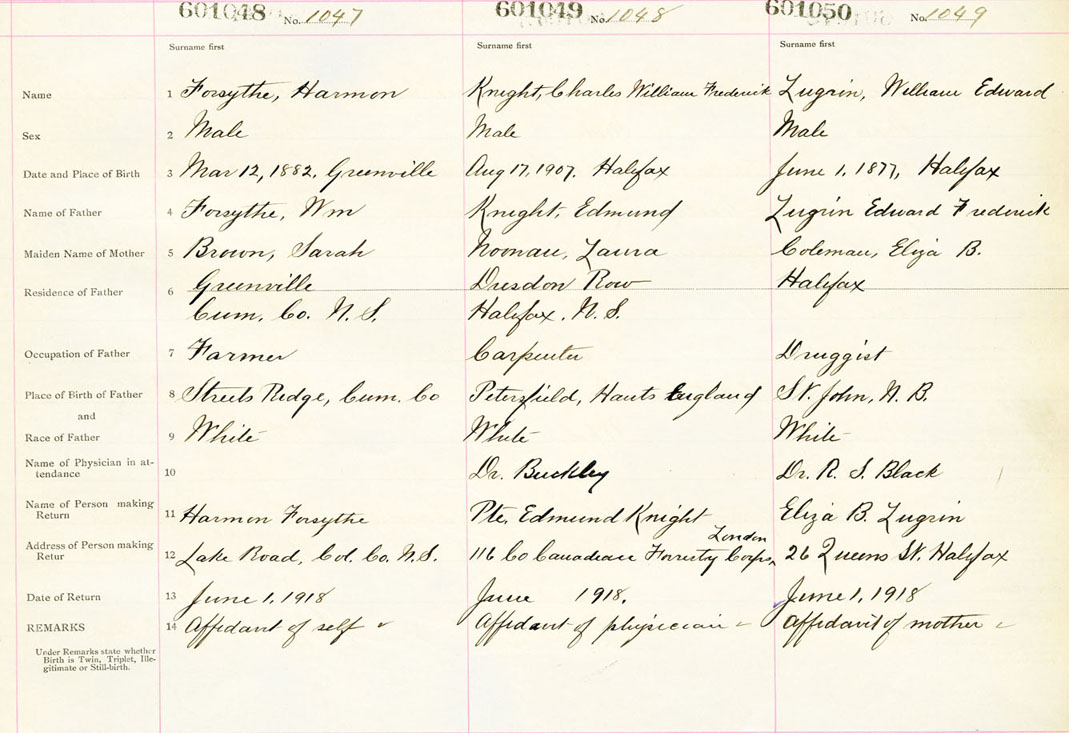 601048 No. 1047 601049 No. 1048 601050 No. 1049
Surname first Surname first Surname first
Name 1 Forsythe, Harmon Knight, Charles William Frederick Lugrin, William Edward
Sex 2 Male Male Male
Date and Place of Birth 3 Mar 12, 1882, Greenville Aug 17, 1907. Halifax June 1, 1877, Halifax
Name of Father 4 Forsythe, Wm Knight, Edmund Lugrin Edward Frederick
Maiden Name of Mother 5 Brown, Sarah Noonan, Laura Coleman, Eliza B.
Residence of Father 6 Greenville Dresdon Row Halifax
Cum. Co. N.S. Halifax, N.S.
Occupation of Father 7 Farmer Carpenter Druggist
Place of Birth of Father 8 Streets Ridge, Cum. Co Petersfield, Hants England St. John, N.B.
and
Race of Father 9 White White White
Name of Physician in at-
tendance 10 Dr. Buckley Dr. R. S. Black
Name of Person making
Return 11 Harmon Forsythe Pte. Edmund Knight Eliza B. Lugrin
London
Address of Person making
Retur 12 Lake Road, Col. Co. N.S. 116 Co Canadian Forestry Corps, 26 Queens St. Halifax
Date of Return 13 June 1, 1918 June 1918. June 1, 1918
REMARKS 14 Affidant of self Affidant of physician Affidavit of mother
Under Remarks state whether
Birth is Twin, Triplet, Ille-
gitimate or Still-birth.